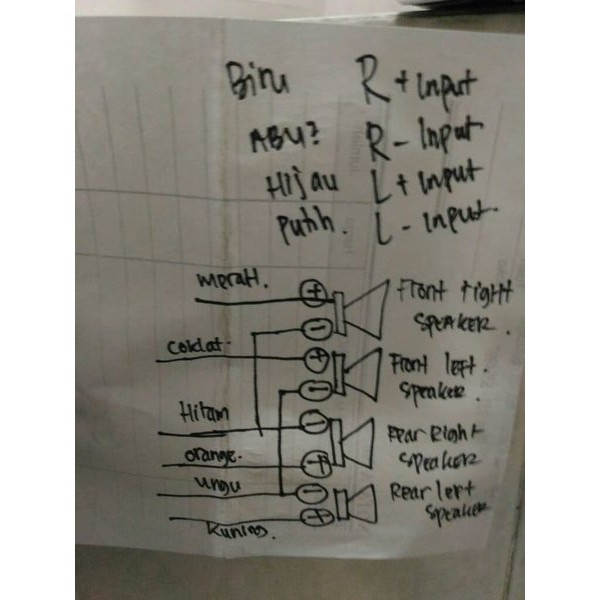 Biru R + Input
ABU? R - Input
Hijau L + Input
Putih. L - Input.
merah. + Front right
- SPEAKER.
coklat. + Front left.
- Speaker.
Hitam - Rear Right
orange. + Speaker
ungu - Rear left
kuning + Speaker